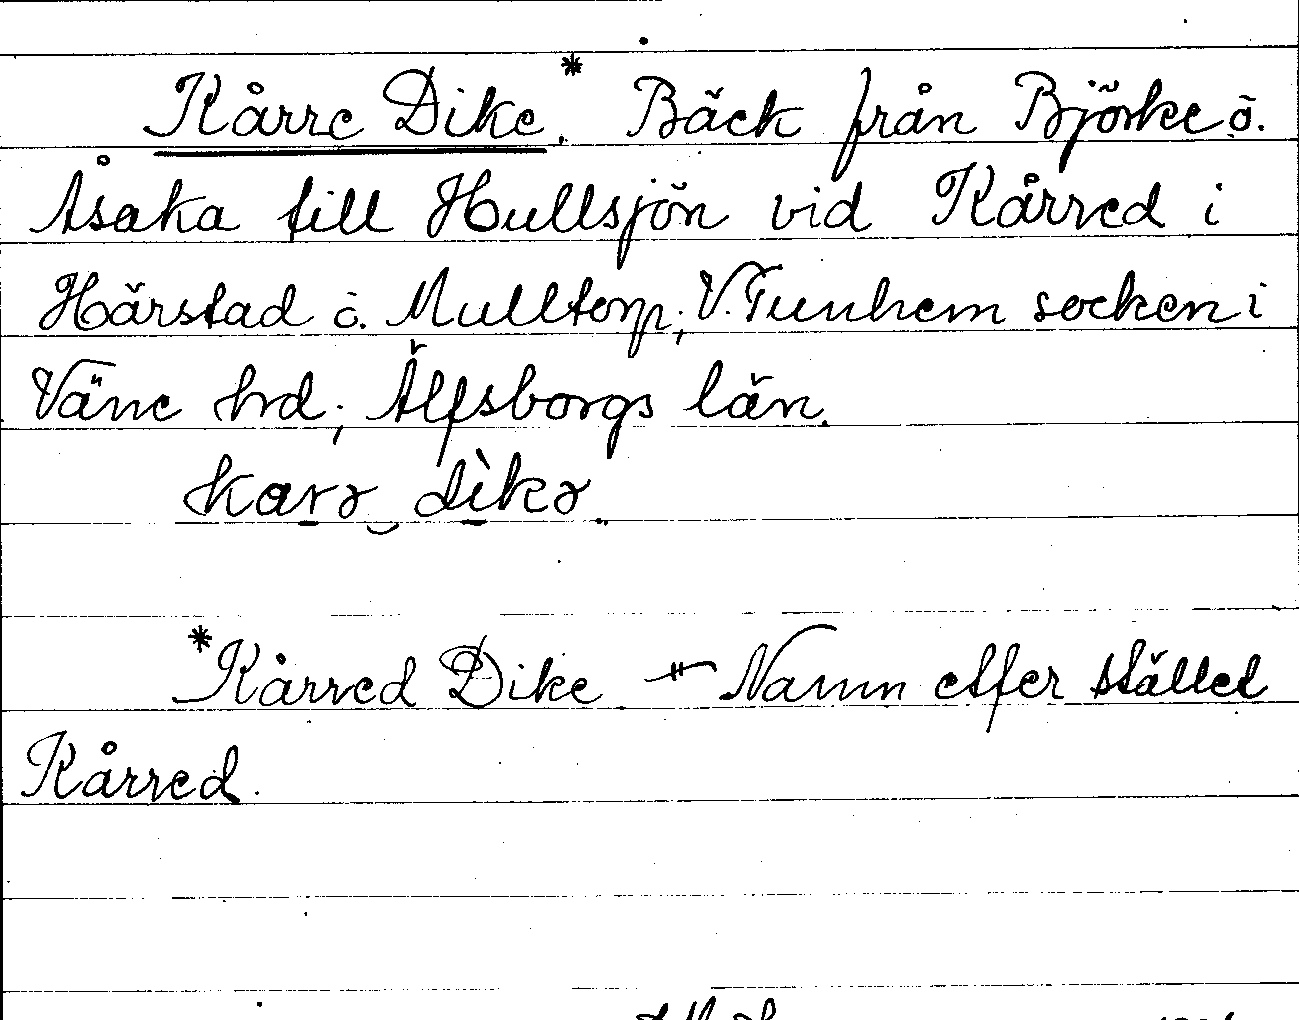 Kårre Dike.* Bäck från Björke ö.
Åsaka till Hullsjön vid Kårred i
Härstad ö. Mulltorp, V. Tunhem socken i
Väne hrd, Älfsborgs län.
karə dìkə.
*Kårred Dike Namn efter stället
Kårred.